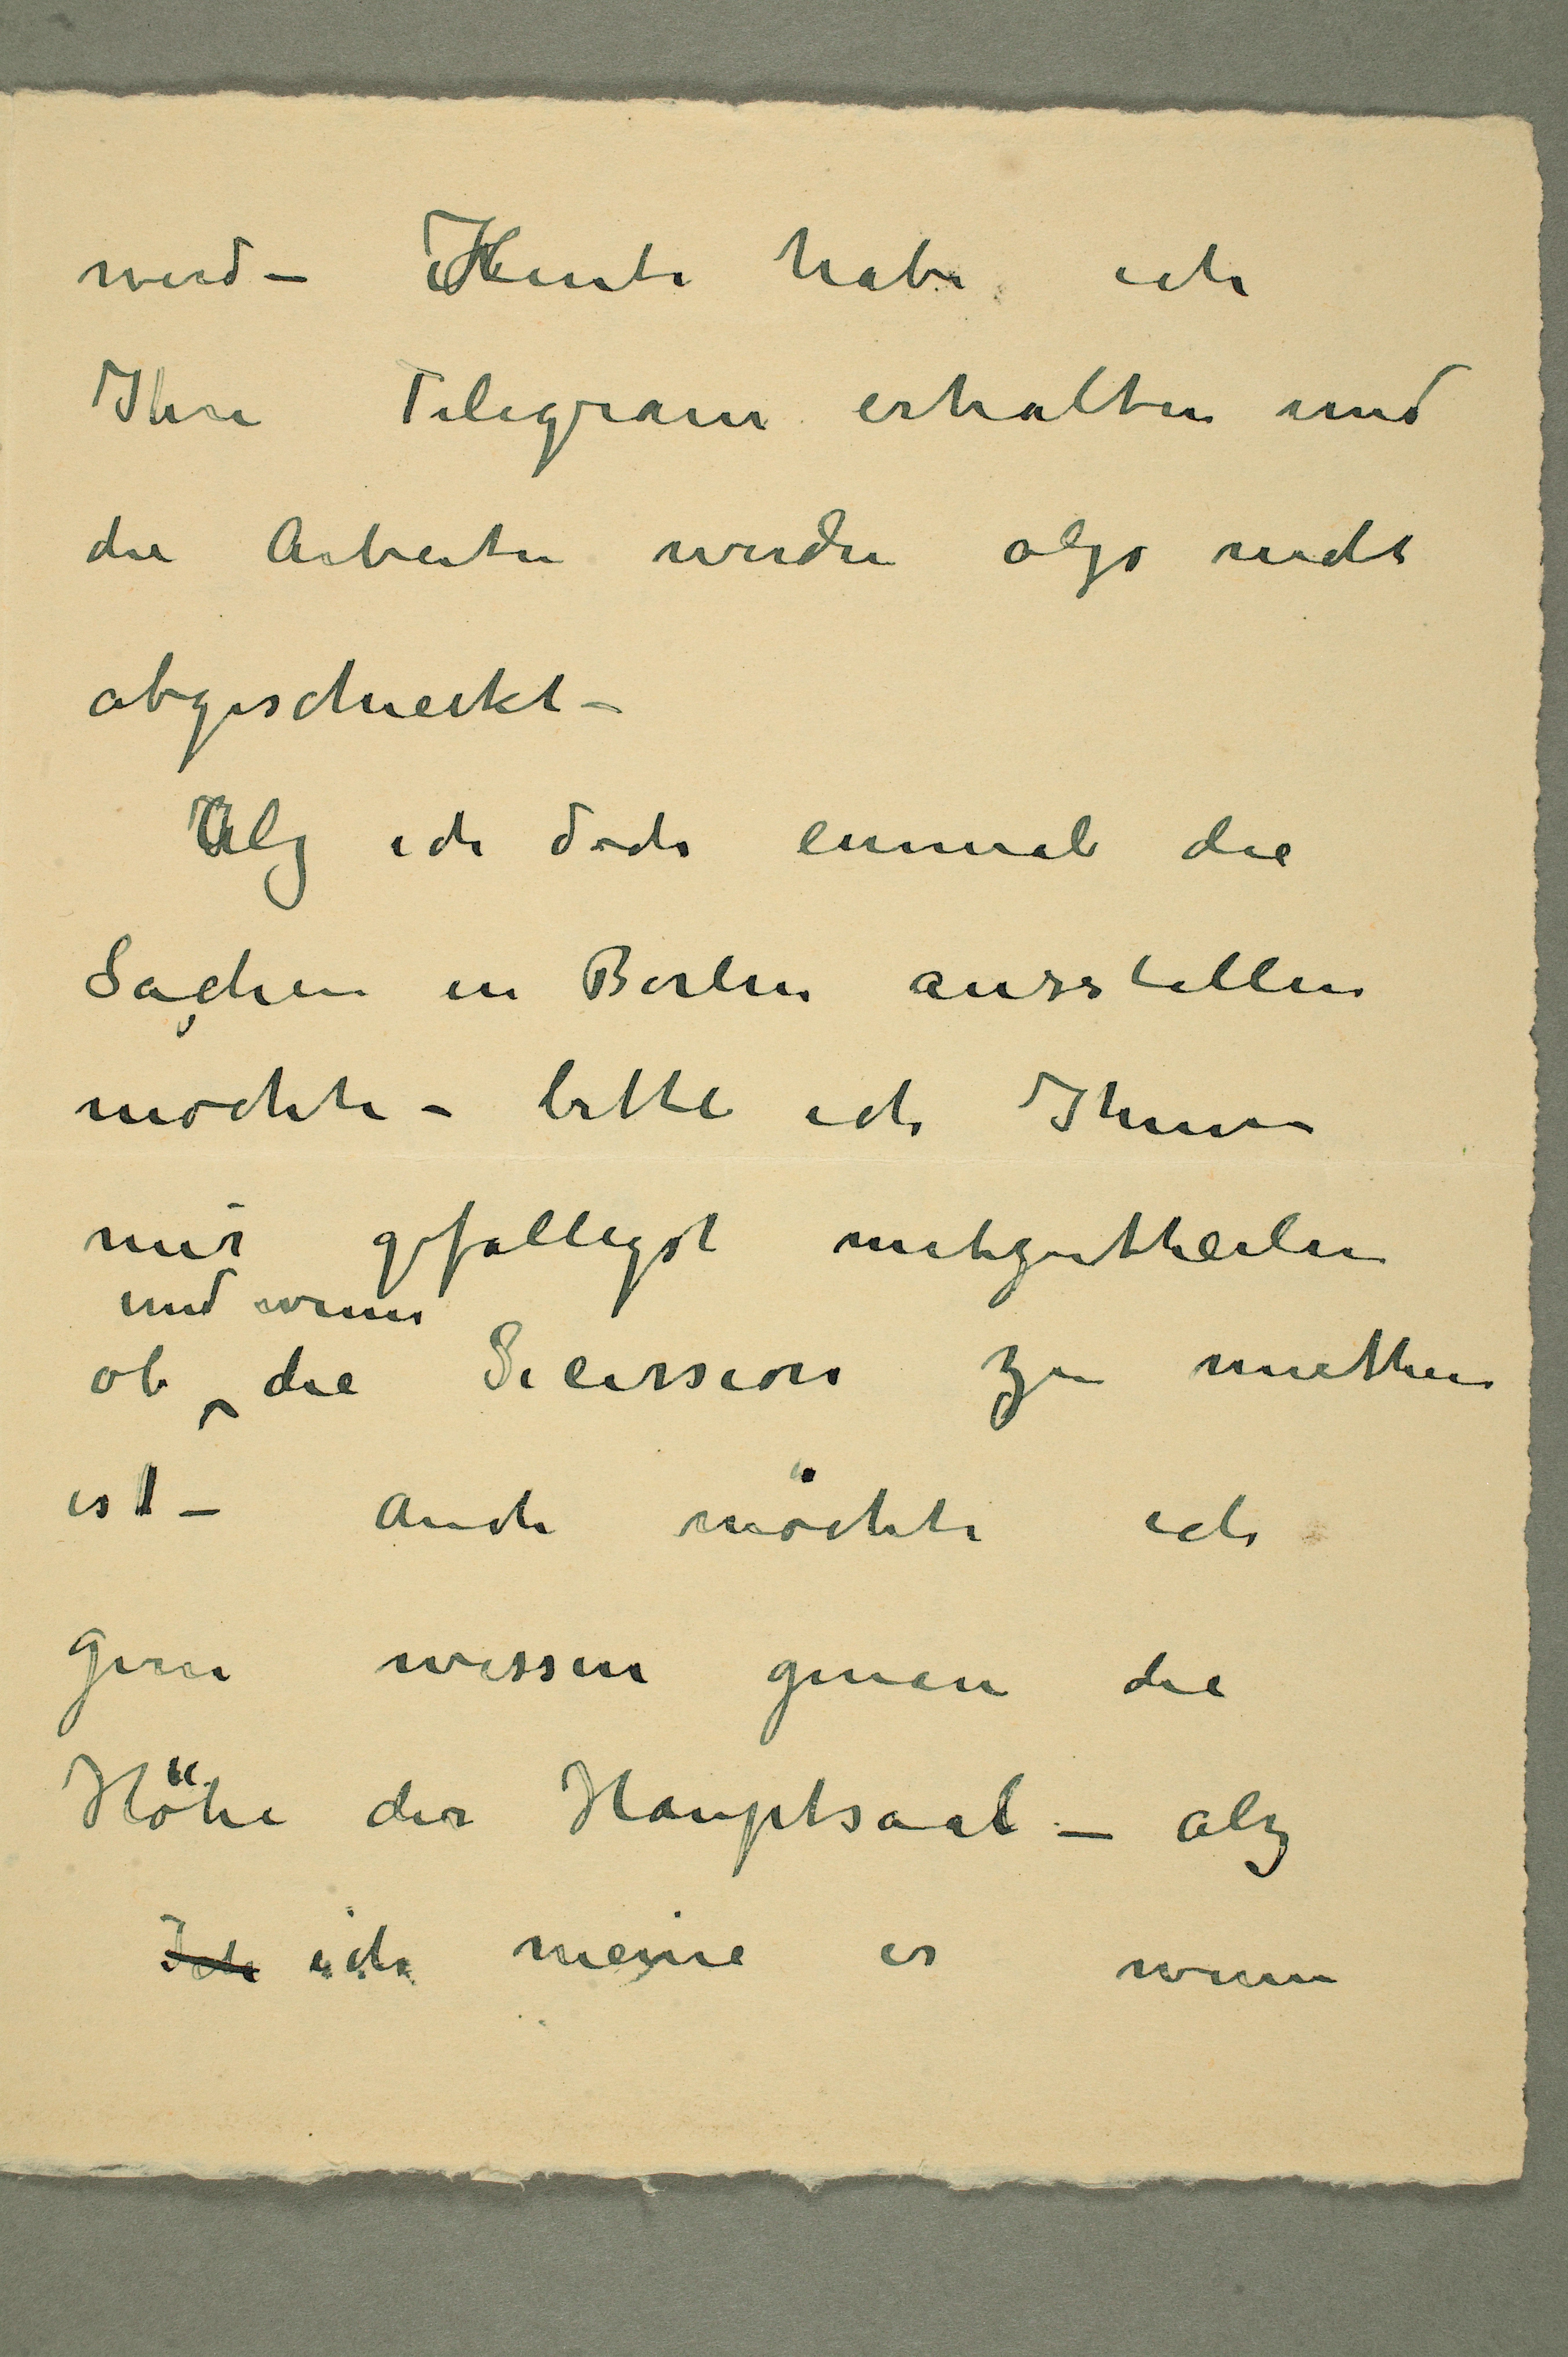 werd – Heute habe ich
Ihre Telegram erhalten und
die Arbeiten werden algo nicht
abgeschieckt –
Alg ich doch einmal die
Sachen in Berlin ausstellen
mochte – bitte ich Ihnen
mir gefalligst mitzutheilen
und wenn
ob die Secession zu miethen
ist – Auch möchte ich
gern wissen genau die
Höhe der Hauptsaal – alg
Ich ich meine es wenn